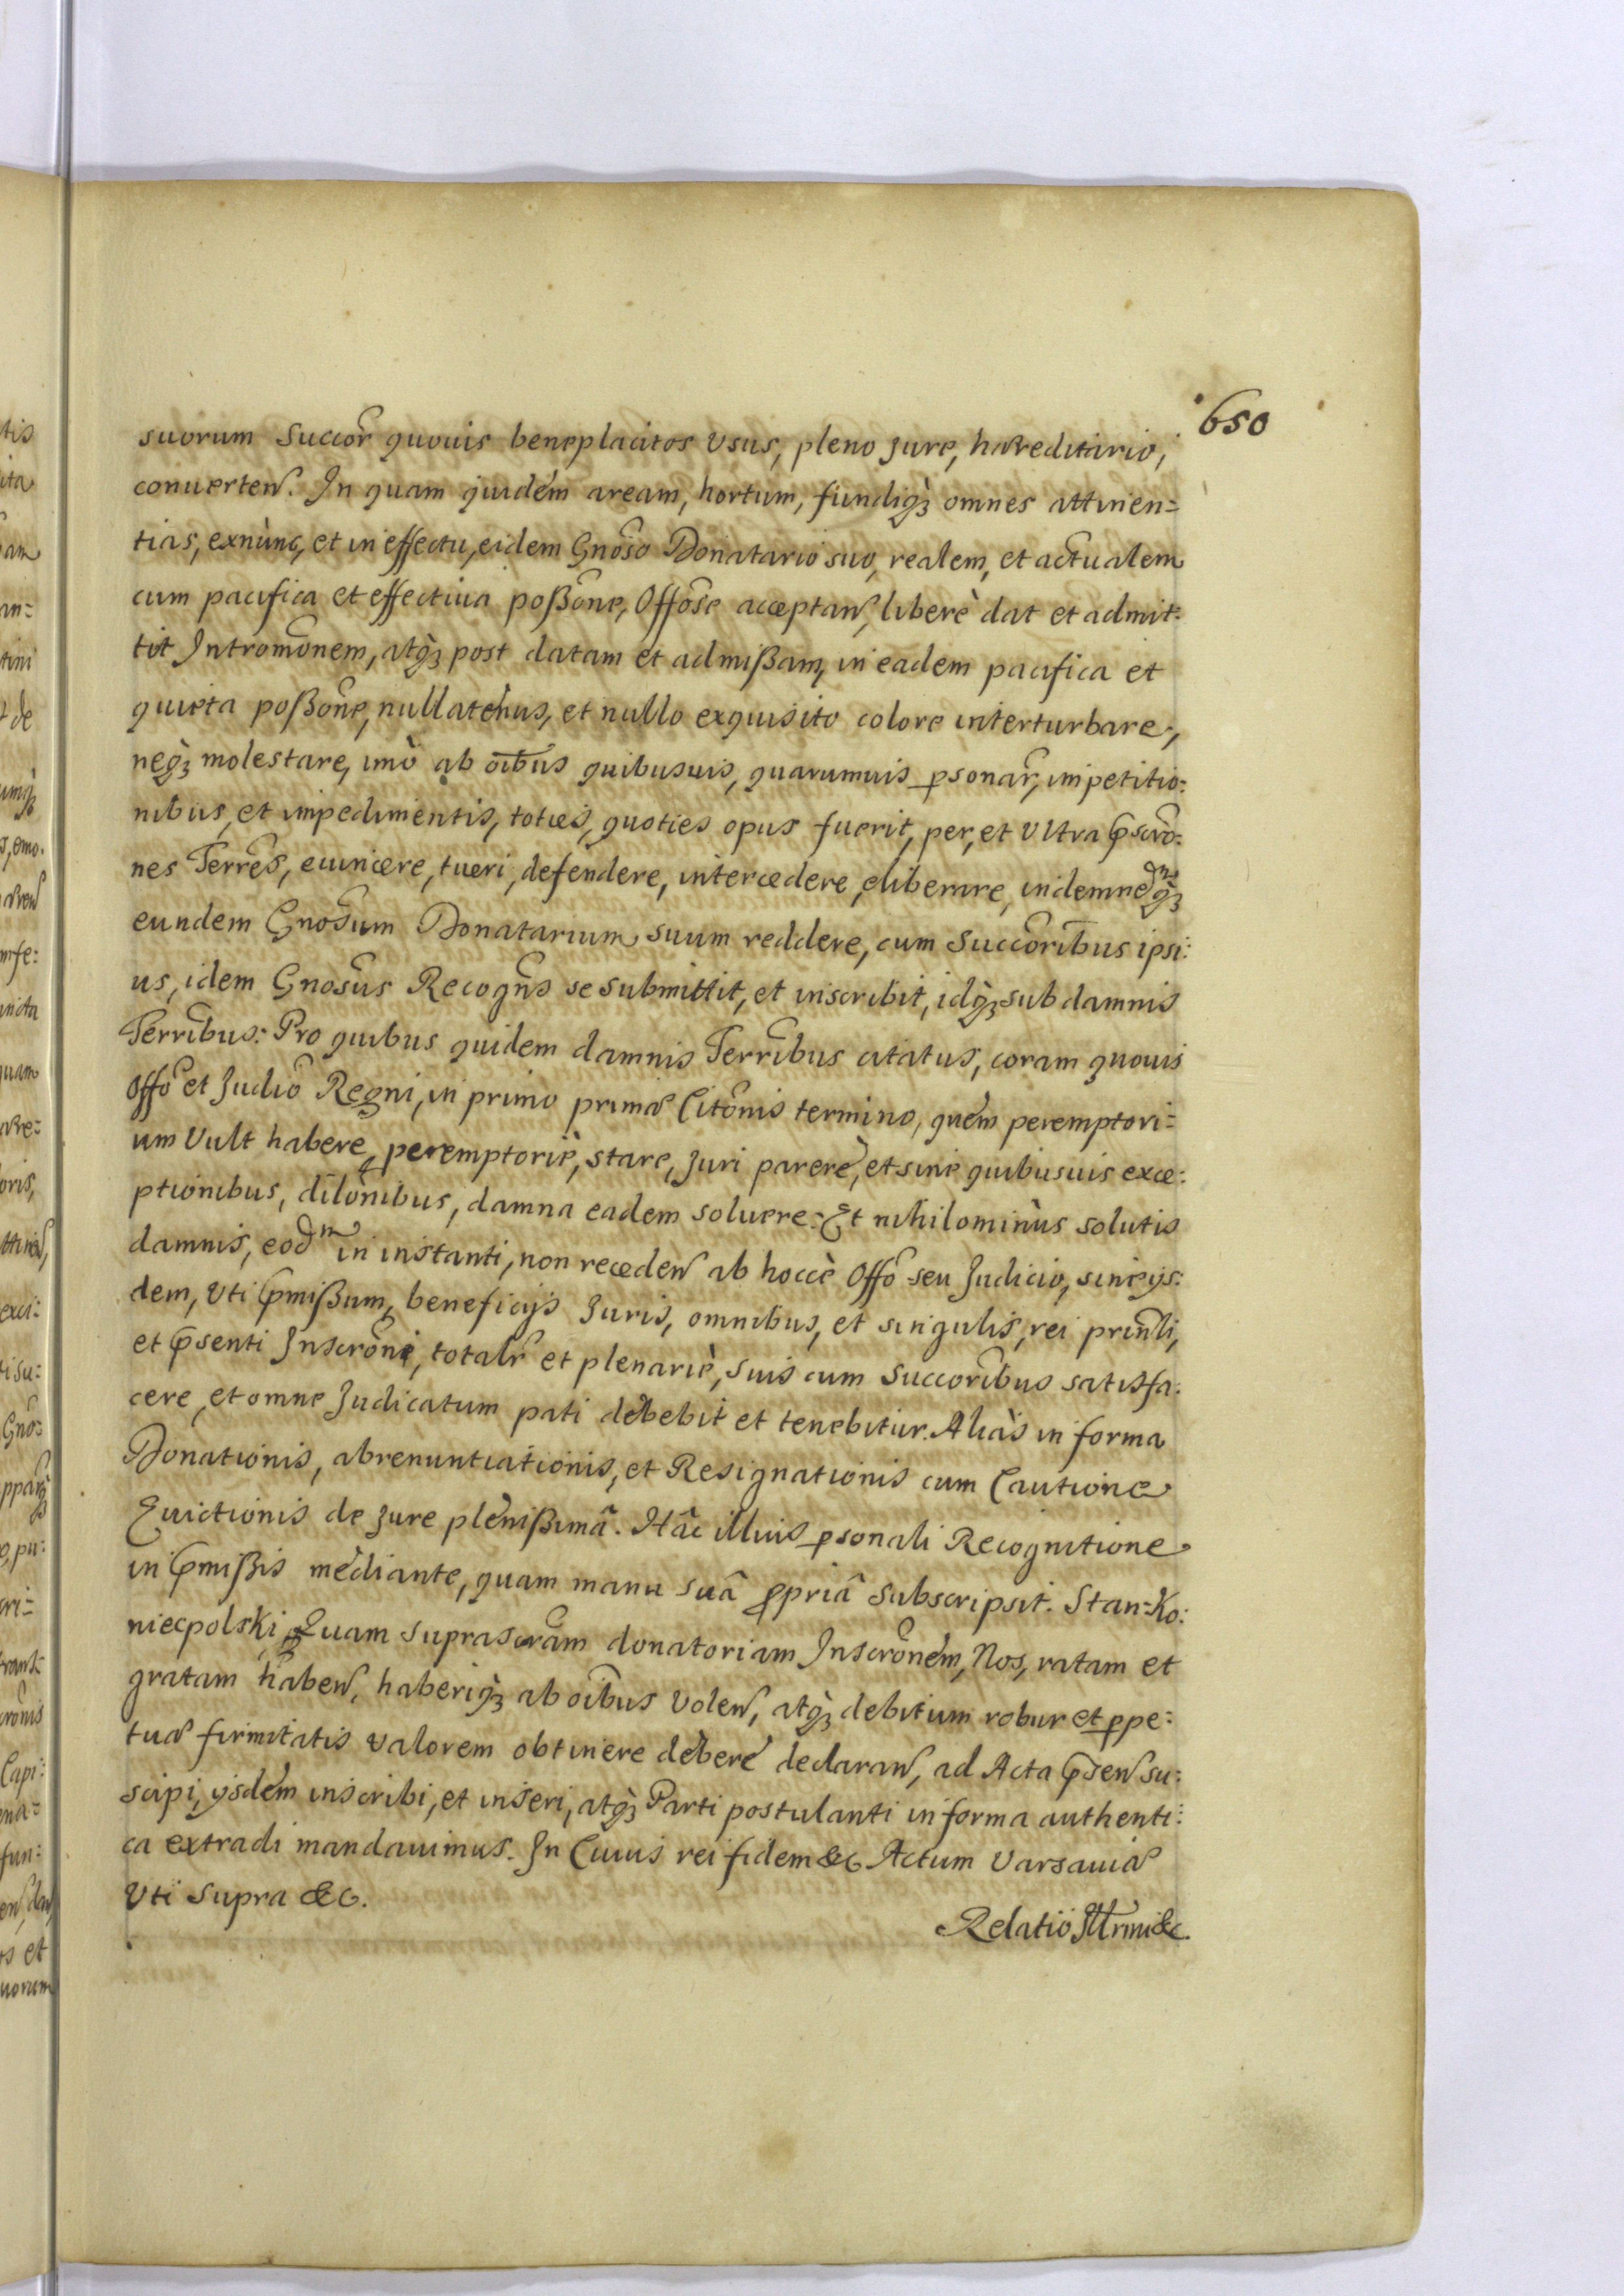 650
suorum Succor̃ quouis beneplacitos Vsus, pleno Jure, hæreditario,
conuerten̄. In quam quidem aream, hortum, fundiq₃ omnes attinen=
tias, exnùnc, et in effectu, eidem Gnoso Donatario suo, realem, et actualem
cum pacifica et effectiua poßone, Offose acceptan̄, liberè dat et admit:
tit Intromonem, atq̀₃ post datam et admißam, in eadem pacifica et
quieta poßone, nullatenus, et nullo exquisito colore interturbare,
neq̀₃ molestare, imò ab oibus quibusuis, quarumuis ꝑsonar̃, impetitio:
nibus, et impedimentis, toties, quoties opus fuerit, per, et Vltra p̃scro:
nes Terres, euincere, tueri, defendere, intercedere, eliberare, indemnedmq̀₃
eundem Gnosum Donatarium suum reddere, cum Succoribus ipsi:
us, idem Gnosus Recogns se submittit, et inscribit, idq̀₃ sub damnis
Terribus: Pro quibus quidem damnis Terribus citatus, coram quouis
Offo et Judio Regni, in primo primæ Citonis termino, quem peremptori=
um Vult habere, peremptoriè, stare, Juri parere, et sine quibusuis exce:
ptionibus, dilonibus, damna eadem soluere: Et nihilominùs solutis
damnis, eodm in instanti, non receden̄ ab hoccè Offo seu Judicio, sine ijs:
dem, Vti p̃mißum, beneficijs Juris, omnibus, et singulis, rei prinli,
et p̃senti Inscroni, totalr̃ et plenariè, suis cum Succoribus satisfa:
cere, et omne Judicatum pati debebit et tenebitur. Aliàs in forma
Donationis, abrenuntiationis, et Resignationis cum Cautione
Euictionis de Jure plenißimâ. Hâc illius ꝑsonali Recognitione
in p̃mißis mediante, quam manu suâ ꝓpriâ subscripsit. Stan: Ko:
niecpolski Quam suprascram donatoriam Inscronem, Nos, ratam et
gratam haben̄, haberiq̀₃ ab oibus Volen̄, atq̀₃ debitum robur et ꝑpe:
tuæ firmitatis valorem obtinere debere declaran̄, ad Acta p̃sen̄ su:
scipi, ijsdem inscribi, et inseri, atq̀₃ Parti postulanti in forma authenti:
ca extradi mandauimus. In Cuius rei fidem &c Actum Varsauiæ
Vti supra &c.
Relatio Illrmi &c.